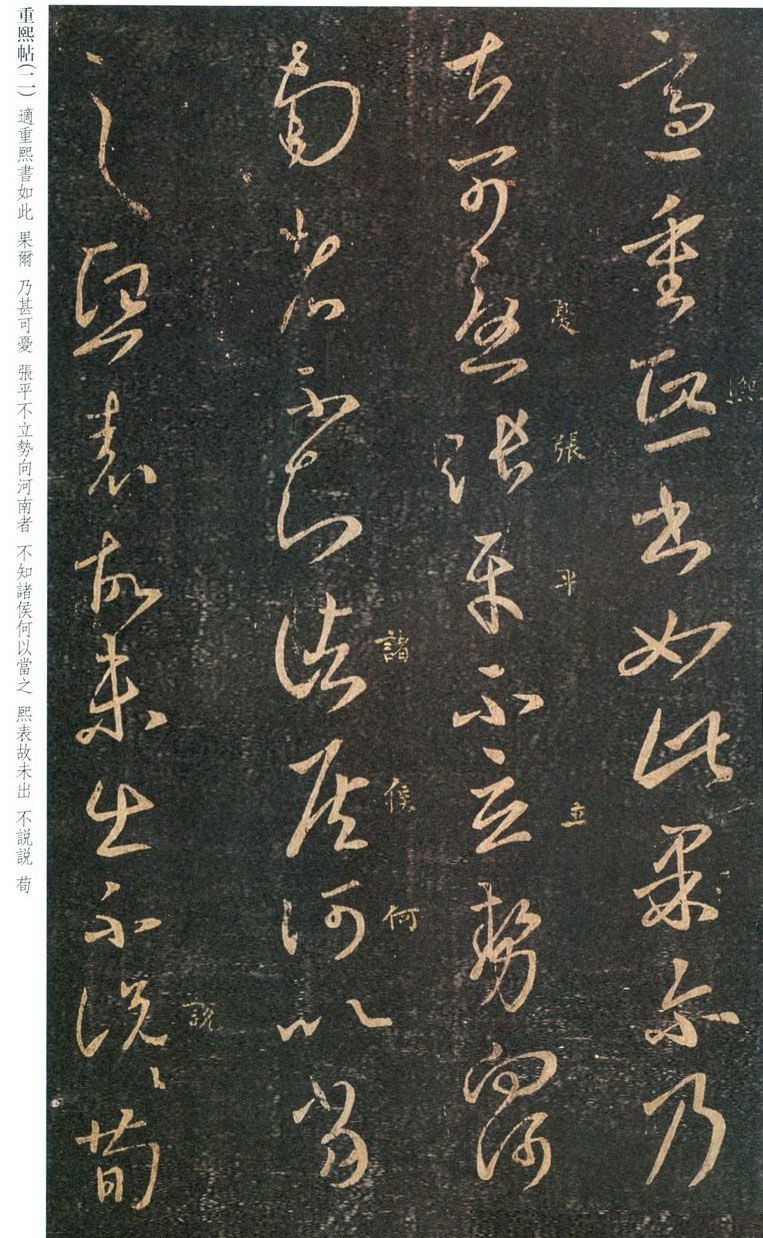 適重熙書如此果爾乃
甚可憂張平不立勢向河
南者不知諸侯何以當
之熙表故未出不説説荀
熙
憂
張
平
立
諸
侯
何
説
重熙帖(二) 適重熙書如此 果爾 乃甚可憂 張平不立勢向河南者 不知諸侯何以當之 熙表故未出 不説説 荀